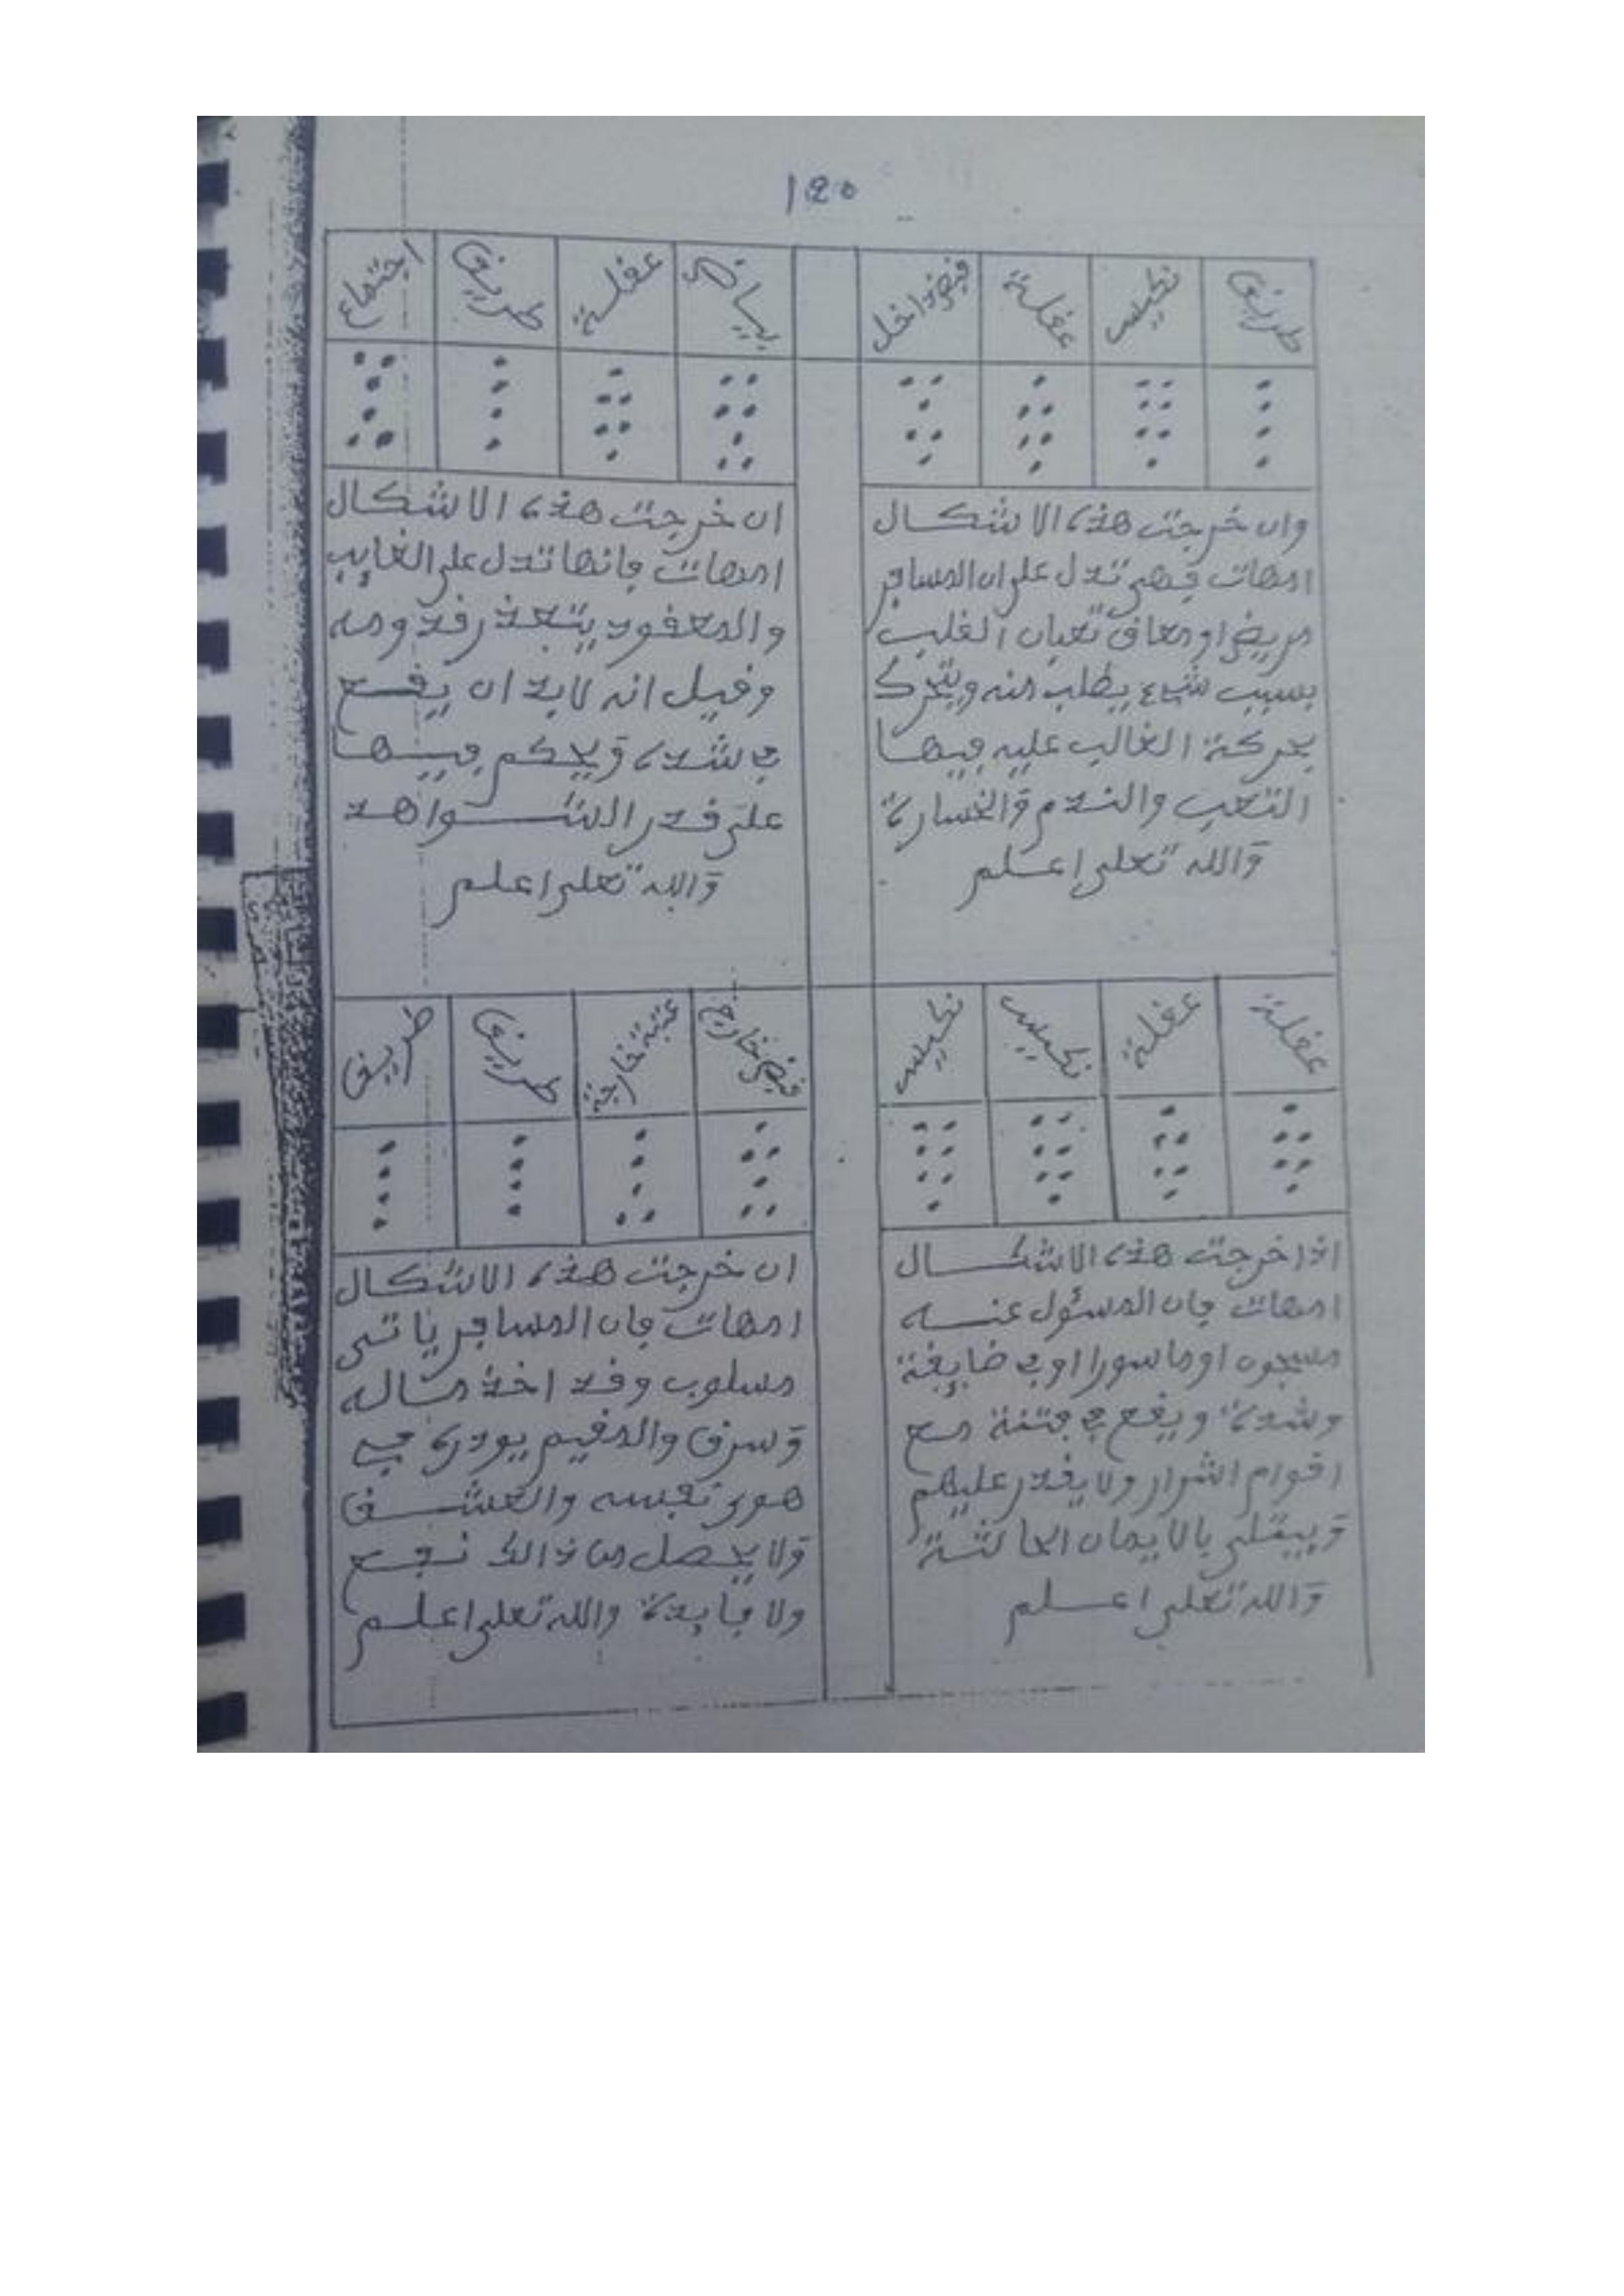 120
طريق نكيس عقلة قبض داخل
وان خرجت هذه الاشكال
امهات فهي تدل على ان المسافر
مريض او معاق تعبان القلب
بسبب شيء يطلب منه ويتحرك
بحركة الغالب عليه فيها
التعب والندم والخسارة
والله تعلى اعلم
بياض عقلة طريق اجتماع
ان خرجت هذه الاشكال
امهات فانها تدل على الغايب
والمفقود يتعذر قدومه
وقيل انه لابد ان يقع
في شدة ويحكم فيها
على قدر الشواهد
والله تعلى اعلم
عقلة عقلة نكيس نكيس
اذا خرجت هذه الاشكال
امهات فان المسئول عنه
مسجون او ماسورا او في ضايقة
وشدة ويقع في فتنة مع
اقوام اشرار ولا يقدر عليهم
ويبتلى بالايمان الحانثة
والله تعلى اعلم
قبض خارج عتبة خارجة طريق طريق
ان خرجت هذه الاشكال
امهات فان المسافر ياتي
مسلوب وقد اخذ ماله
وسرق والمقيم يودره في
هوى نفسه والعشق
ولا يحصل من ذالك نفع
ولا فايدة والله تعلى اعلم